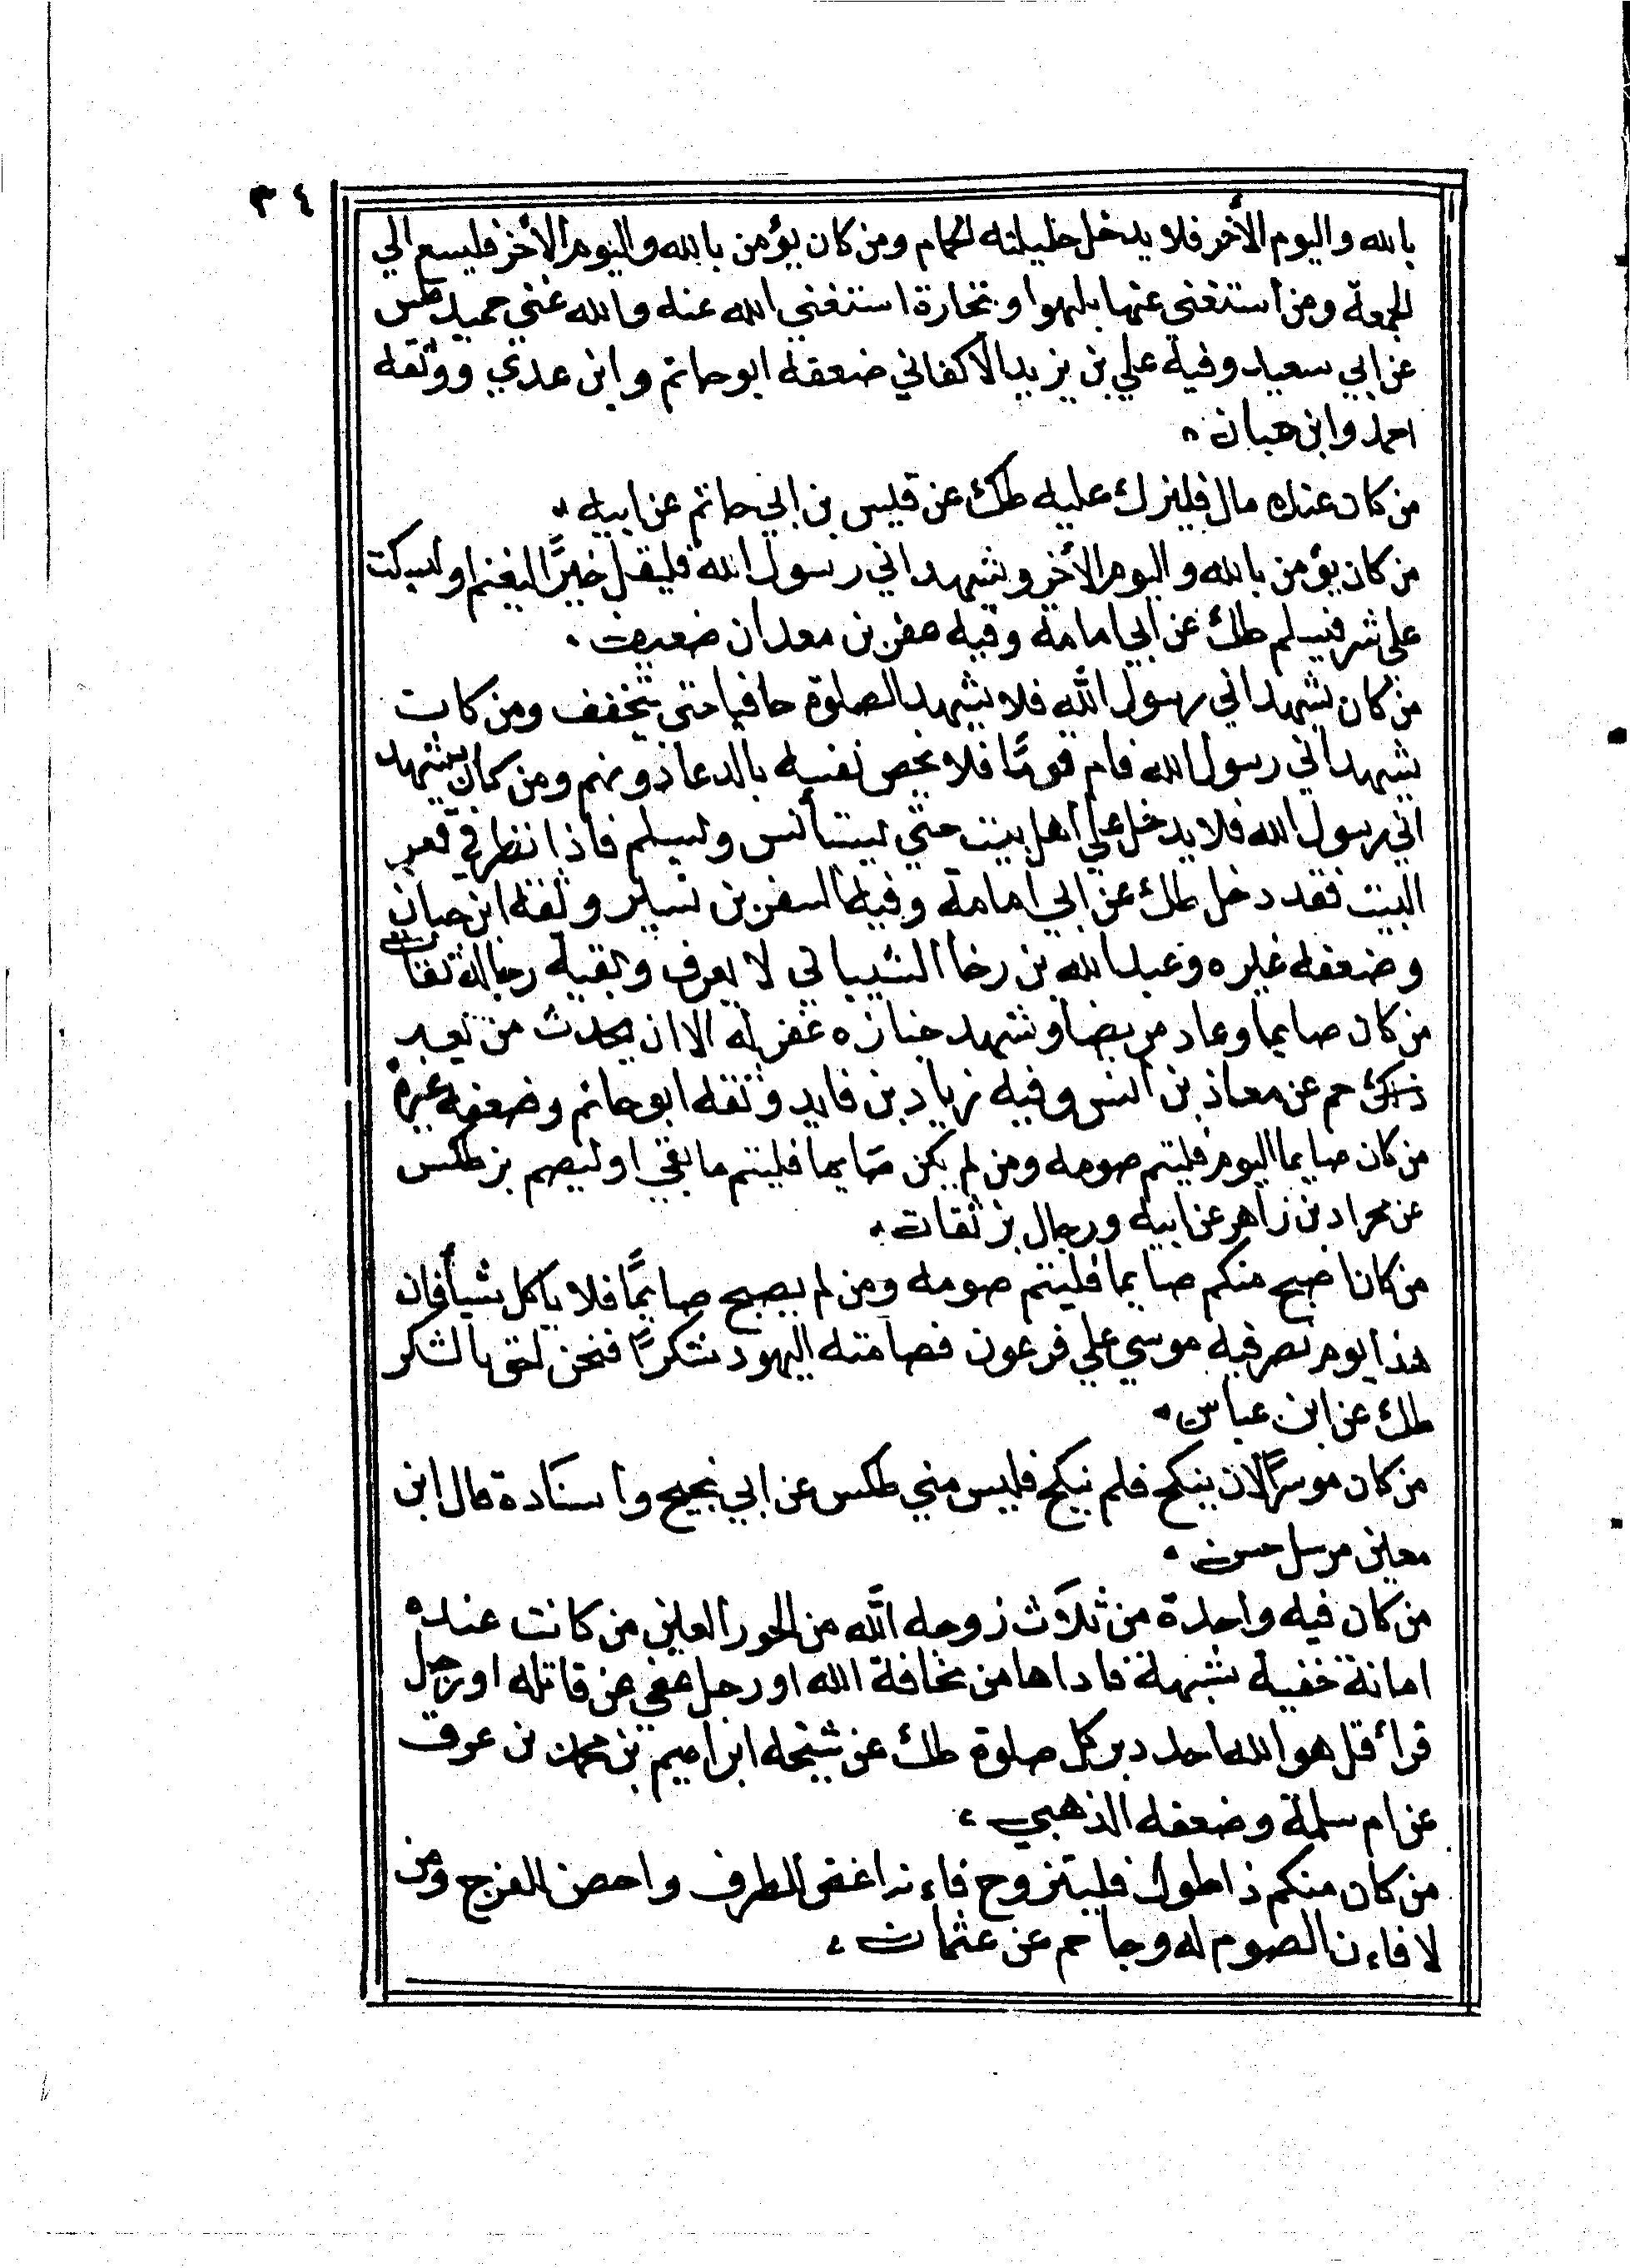 ٣٤
بالله واليوم الأخر فلا يدخل حليلته الحمام ومن كان يؤمن بالله واليوم الأخر فليسع الي
الجمعة ومن استغني عنها بلهوا وتجارة استغني الله عنه والله غني حميد طس
عن ابي سعيد وفية علي بن يزيد الأكفاني ضعفه ابو حاتم وابن عدي ووثقه
احمد وابن حبان
من كان عنده مال فليزك عليه طك عن قيس بن ابي حاتم عن ابيه
من كان يؤمن بالله واليوم الأخر ويشهد اني رسول الله فليقل خيرًا ليغنم او ليسكت
علي شر فيسلم طك عن ابي امامة وفيه عفر بن معدان ضعيف
من كان يشهد اني رسول الله فلا يشهد الصلوة حاقنا حتي يتخفف ومن كان
يشهد اني رسول الله فام قومًا فلا يخص نفسه بالدعا دونهم ومن كان يشهد
اني رسول الله فلا يدخل علي اهل بيت حتي يستأنس ويسلم فاذا نظر في قعر
البيت فقد دخل طك عن ابي امامة وفيه السفر بن نسير وثقه ابن حبان
وضعفه غيره وعبد الله بن رخا الشيباني لا يعرف وبقية رجاله ثقات
من كان صايما وعاد مريضا وشهد جنازه غفر له الا ان يحدث من بعد
ذلك حم عن معاذ بن انس وفيه زياد بن فايد وثقه ابو حاتم وضعفه غيره
من كان صايما اليوم فليتم صومه ومن لم يكن صايما فليتم ما بقي او ليصم بز طكس
عن مجراد بن زاهر عن ابيه ورجال بز ثقات
من كان اصبح منكم صايما فليتم صومه ومن لم يصبح صايمًا فلا ياكل شيأ فان
هذا يوم نصر فيه موسي علي فرعون فصامته اليهود شكرًا فنحن احق بالشكر
طك عن ابن عباس
من كان موسرًا لان ينكح فلم ينكح فليس مني طكس عن ابي نجيح واسناده قال ابن
معين مرسل حسن
من كان فيه واحدة من ثلاث زوجه الله من الحور العين من كانت عنده
امانة خفية شهية فاداها من مخافة الله او رجل عفي عن قاتله او رجل
قرأ قل هو الله احد دبر كل صلوة طك عن شيخه ابراهيم بن محمد بن عرق
عن ام سلمة وضعفه الذهبي
من كان منكم ذا طول فليتزوج فاءنه اغض للطرف واحصن للفرج ومن
لا فاءن الصوم له وجا حم عن عثمان